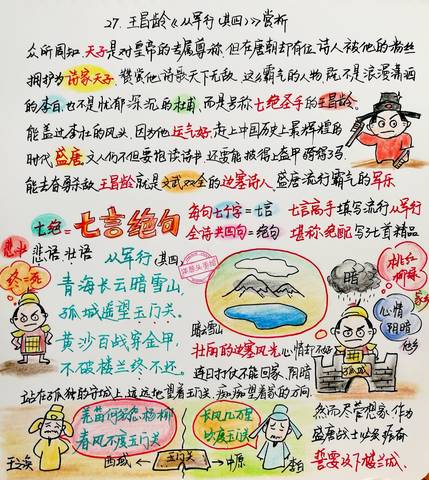 27. 王昌龄《从军行(其四)》赏析
众所周知 天子是对皇帝的专属尊称,但在唐朝却有位诗人被他的粉丝
拥护为诗家天子,赞赏他诗歌天下无敌,这么霸气的人物,既不是浪漫潇洒
的李白,也不是忧郁深沉的杜甫,而是号称七绝圣手的王昌龄,
能盖过李杜的风头,因为他运气好,赶上中国历史上最辉煌的
时代盛唐,文人们不但要饱读诗书,还要能披得上盔甲
能去奋勇杀敌,王昌龄就是文武双全的边塞诗人,盛唐流行霸气的军乐
七绝=七言绝句
每句七个字=七言
全诗共四句=绝句
七言高手填写流行从军行
堪称绝配写3七首精品
悲壮
悲语 壮语
从军行(其四)
终不还
青海长云暗雪山
孤城遥望玉门关
黄沙百战穿金甲
不破楼兰终不还
暗
桃红
柳绿
家乡
心情
阴暗
孤城
壮丽的边塞风光,心情却不好
连日打仗不能回家,阴暗
站在孤独的守城上,远远地望着玉门关,痴痴望着家的方向
羌笛何须怨杨柳
春风不度玉门关
长风几万里
吹度玉门关
王之涣
西域
玉门关
中原
李白
然而尽管想家,作为
盛唐战士
誓要攻下楼兰城